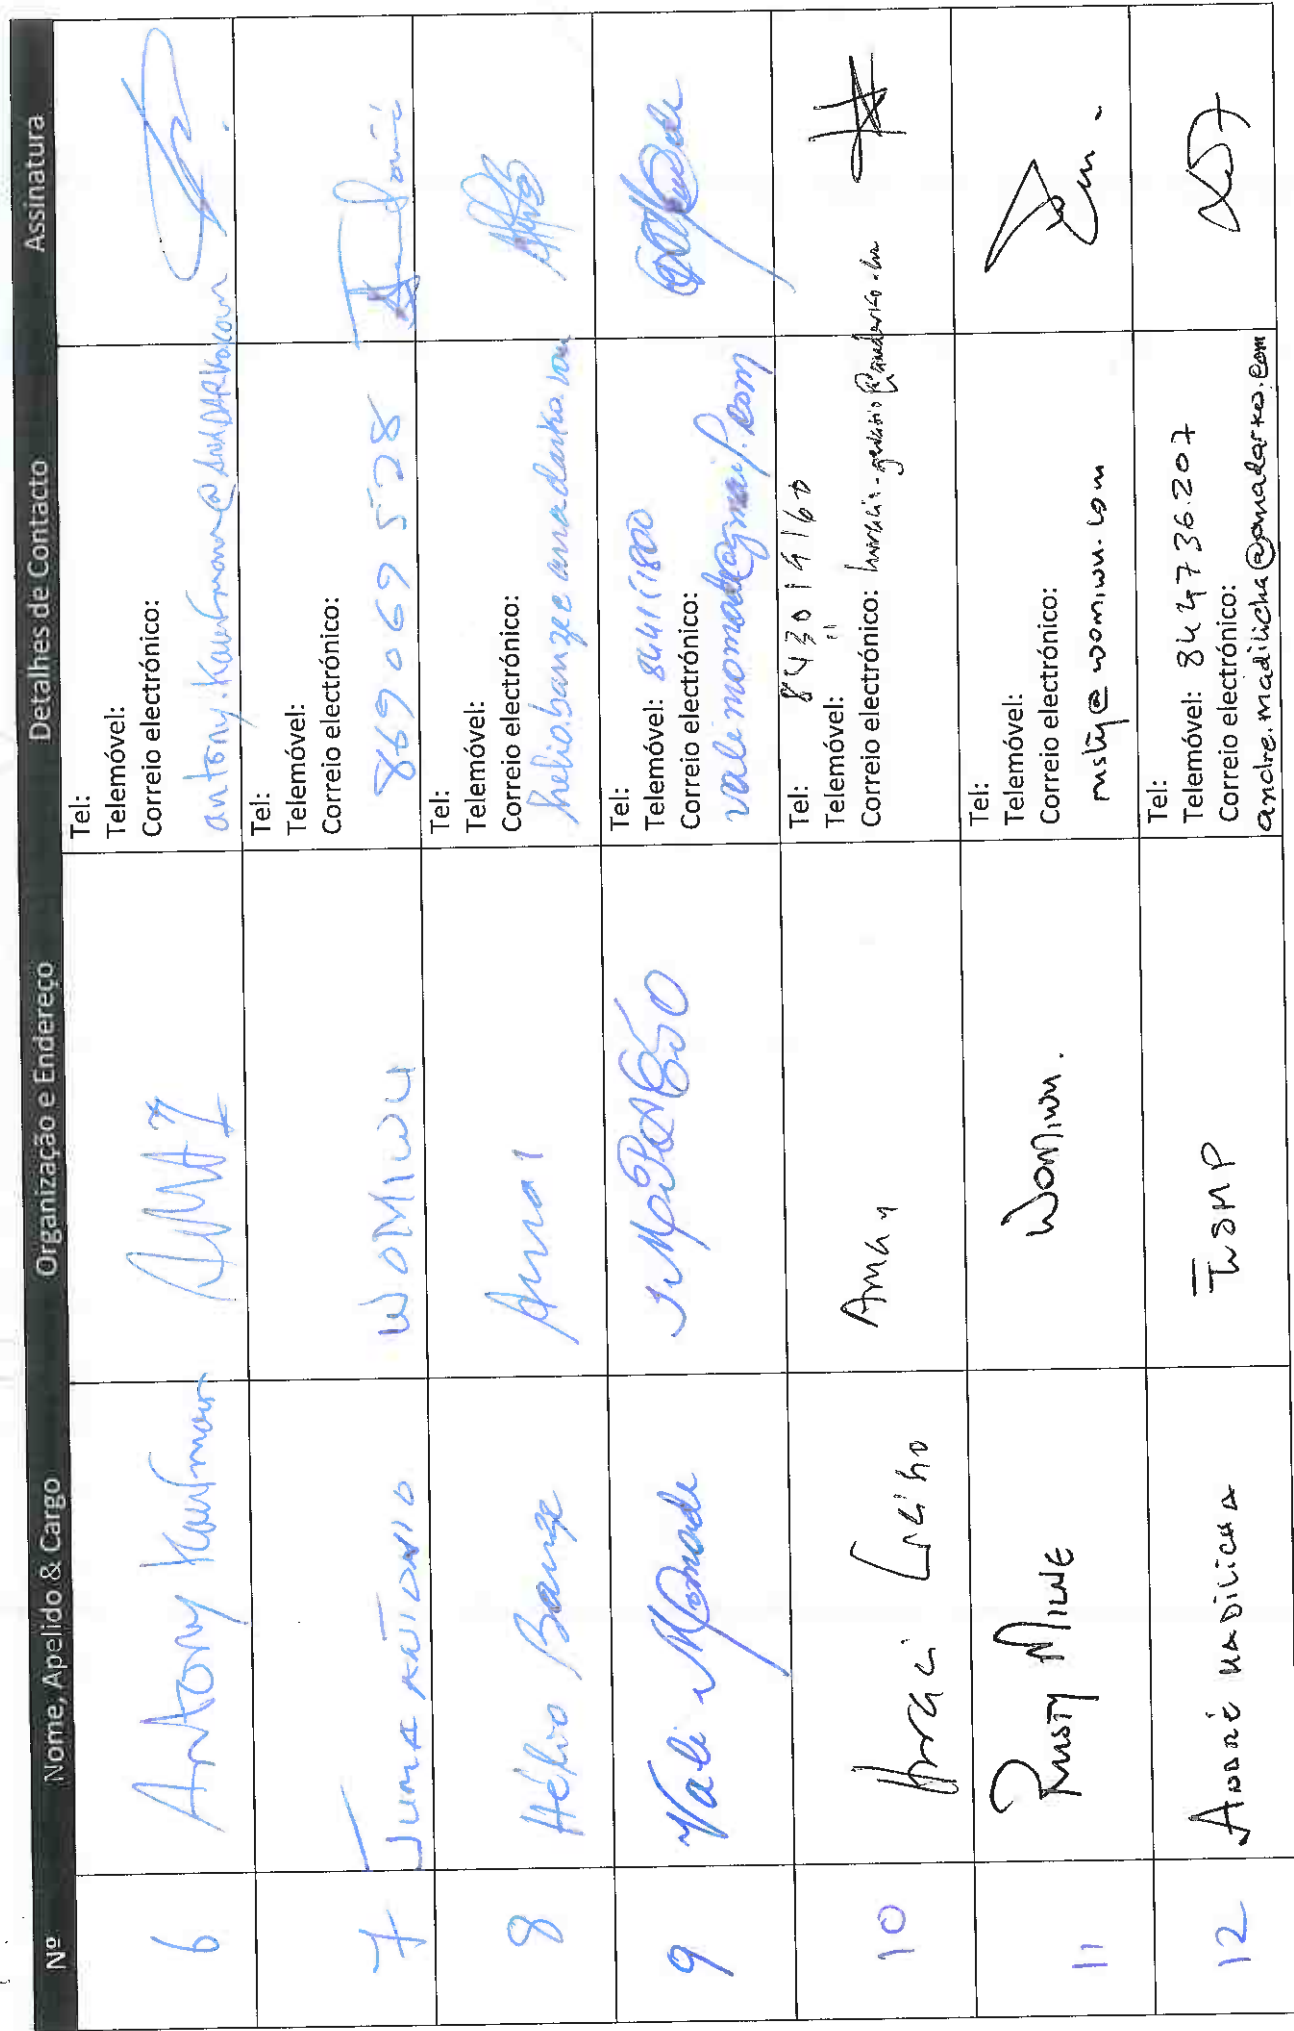 Nº Nome, Apelido & Cargo Organização e Endereço Detalhes de Contacto Assinatura
6 Antony Kaufmann AMA1
Tel:
Telemóvel:
Correio electrónico:
antony.kaufmann@anadarko.com
7 Juma António WOMIWU
Tel:
Telemóvel:
Correio electrónico:
869069528
8 Hélio Banze Ama1
Tel:
Telemóvel:
Correio electrónico:
helio.banze@anadarko.com
9 Vali Momade
Tel:
Telemóvel: 844111800
Correio electrónico:
valemomade@gmail.com
10 Ama1
Tel: 843014160
Telemóvel: "
Correio electrónico:
11 Rusty Milne Womiwu.
Tel:
Telemóvel:
Correio electrónico:
rusty@womiwu.com
12 André Madilicha
Tel:
Telemóvel: 844736207
Correio electrónico:
andre.madilicha@anadarko.com